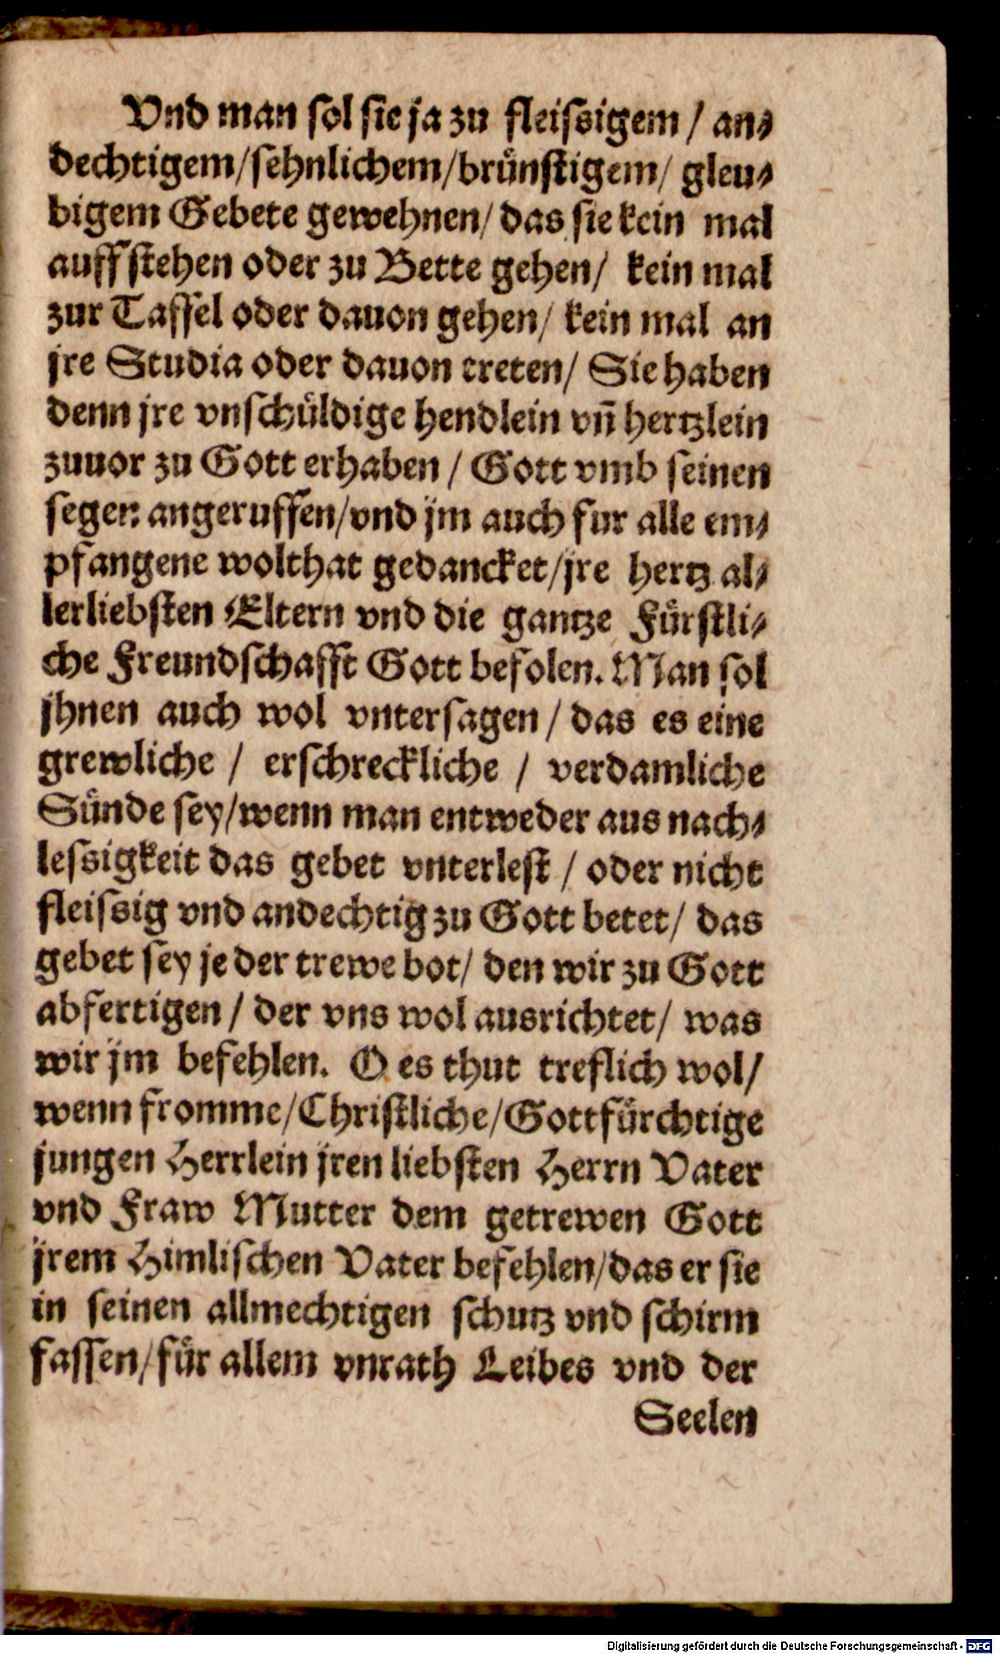 Vnd man sol sie ja zu fleissigem / an⸗
dechtigem/sehnlichem/brünstigem/ gleu⸗
bigem Gebete gewehnen/ das sie kein mal
auffstehen oder zu Bette gehen/ kein mal
zur Taffel oder dauon gehen/ kein mal an
jre Studia oder dauon treten/ Sie haben
denn jre vnschüldige hendlein vñ hertzlein
zuuor zu Gott erhaben / Gott vmb seinen
segen angeruffen/vnd jm auch fur alle em⸗
pfangene wolthat gedancket/jre hertz al⸗
lerliebsten Eltern vnd die gantze Fürstli⸗
che Freundschafft Gott befolen. Man sol
jhnen auch wol vntersagen / das es eine
grewliche / erschreckliche / verdamliche
Sünde sey/wenn man entweder aus nach⸗
lessigkeit das gebet vnterlest / oder nicht
fleissig vnd andechtig zu Gott betet/ das
gebet sey je der trewe bot/ den wir zu Gott
abfertigen / der vns wol ausrichtet/ was
wir jm befehlen. O es thut treflich wol/
wenn fromme/Christliche/Gottfürchtige
jungen Herrlein jren liebsten Herrn Vater
vnd Fraw Mutter dem getrewen Gott
jrem Himlischen Vater befehlen/das er sie
in seinen allmechtigen schutz vnd schirm
fassen/für allem vnrath Leibes vnd der
Seelen
Digitalisierung gefördert durch die Deutsche Forschungsgemeinschaft - DFG